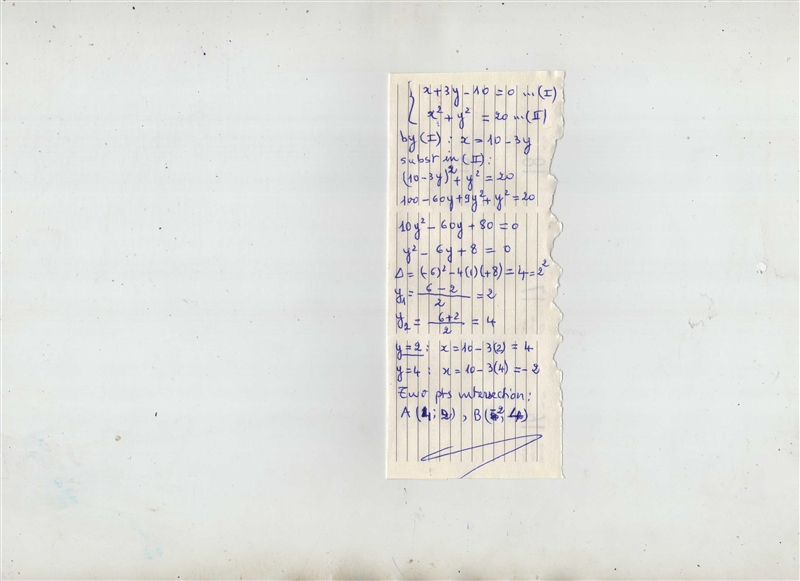 x+3y-10=0 ...(I)
x²+y² =20 ...(II)
by (I): x=10-3y
subst in (II):
(10-3y)²+y²=20
100-60y+9y²+y²=20
10y²-60y+80=0
y²-6y+8=0
Δ=(-6)²-4(1)(+8)=4=2²
y₁=(6-2)/2=2
y₂=(6+2)/2=4
y=2: x=10-3(2)=4
y=4: x=10-3(4)=-2
Two pts intersection:
A(4;2), B(-2;4)